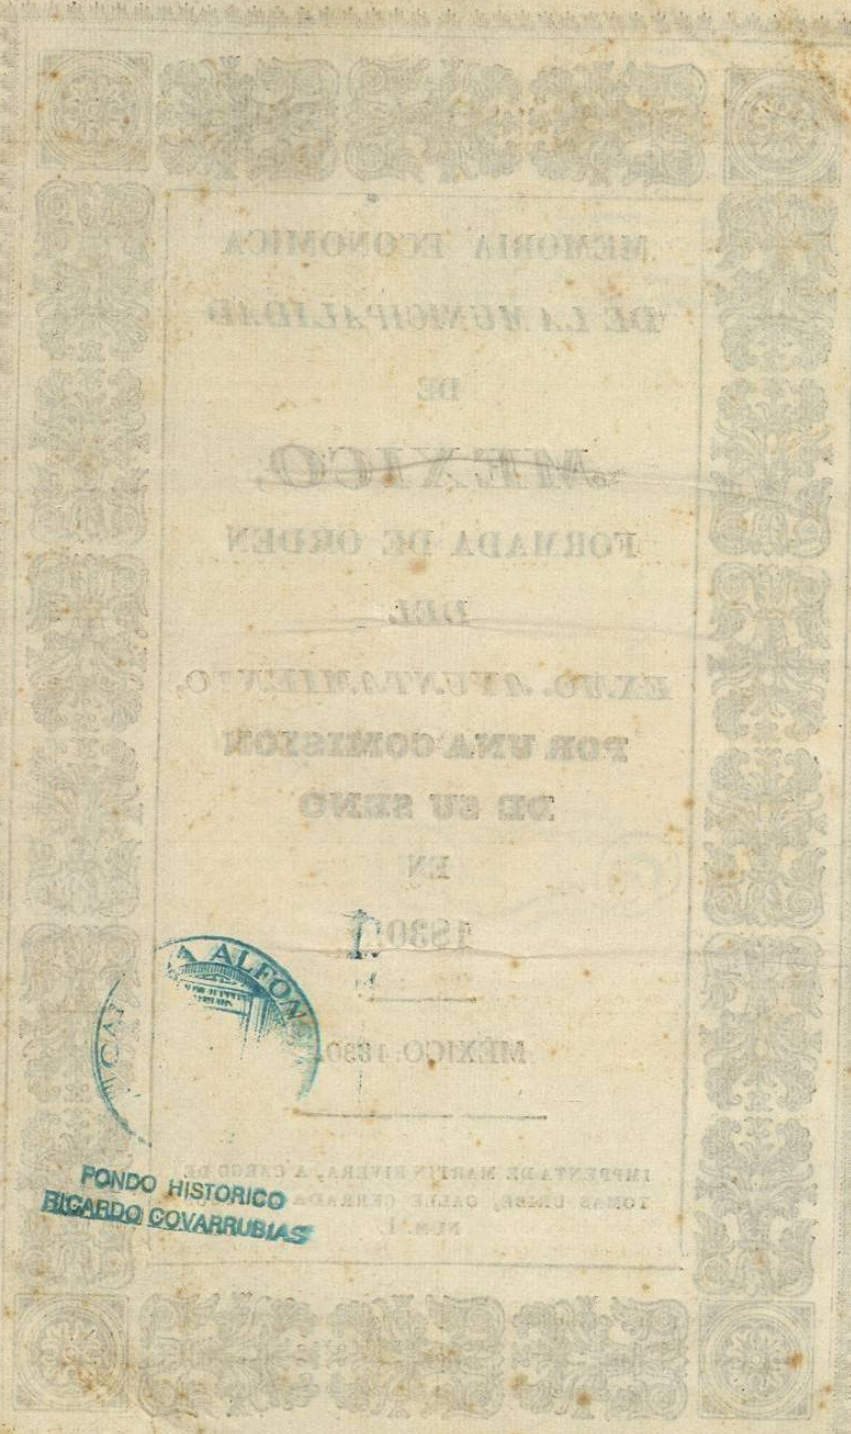 MEMORIA ECONOMICA
DE LA MUNICIPALIDAD
DE
MEXICO,
FORMADA DE ORDEN
DEL
EXMO. AYUNTAMIENTO,
POR UNA COMISION
DE SU SENO
EN
1830.
MÉXICO: 1830.
IMPRENTA DE MARTIN RIVERA, A CARGO DE
TOMAS URIBE, CALLE CERRADA DE
NUM. 1.
A ALFONS
CAP
FONDO HISTORICO
RICARDO COVARRUBIAS